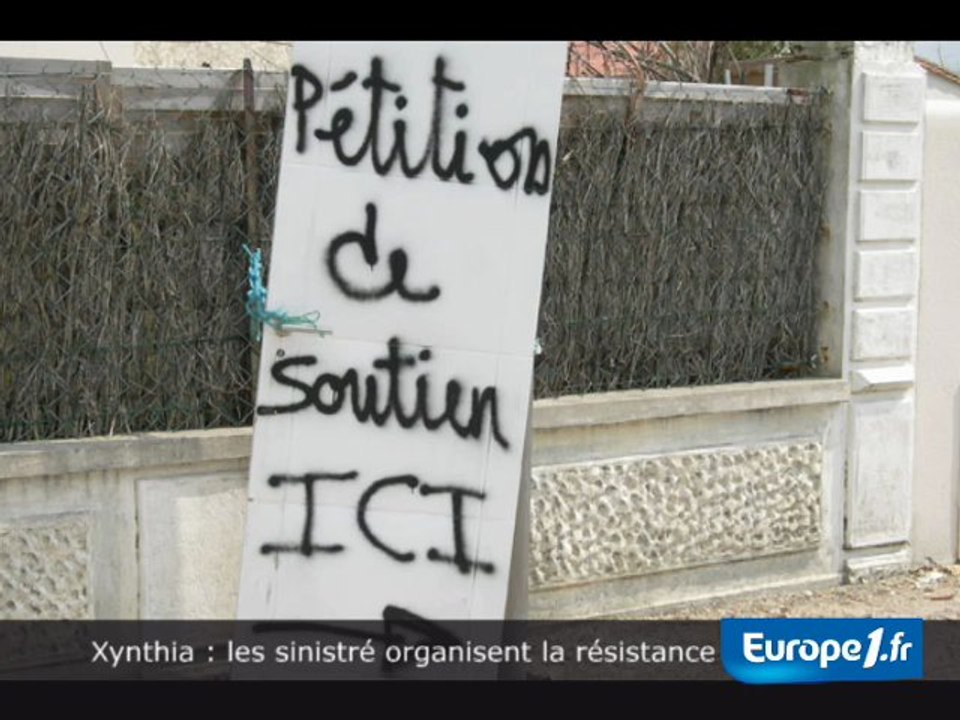 Pétition
de
soutien
ICI
Xynthia : les sinistré organisent la résistance
Europe1.fr